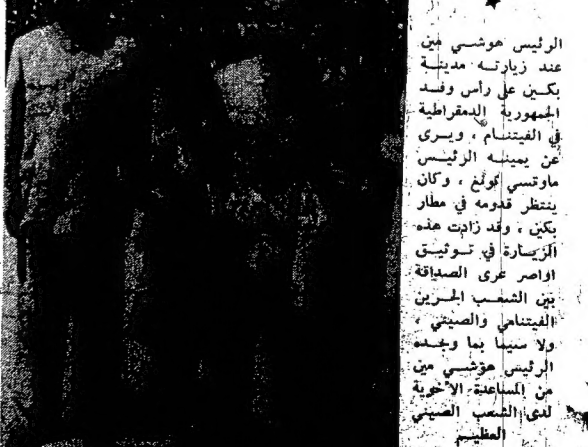 الرئيس هوشي مين
عند زيارته مدينة
بكين على رأس وفد
الجمهورية الدمقراطية
في الفيتنام ، ويرى
عن يمينه الرئيس
ماوتسي تونغ ، وكان
ينتظر قدومه في مطار
بكين ، وقد زادت هذه
الزيارة في توثيق
اواصر عرى الصداقة
بين الشعب الحرين
الفيتنامي والصيني ،
ولا سيما بما وجده
الرئيس هوشي مين
من المساعدة الاخوية
لدى الشعب الصيني
العظيم